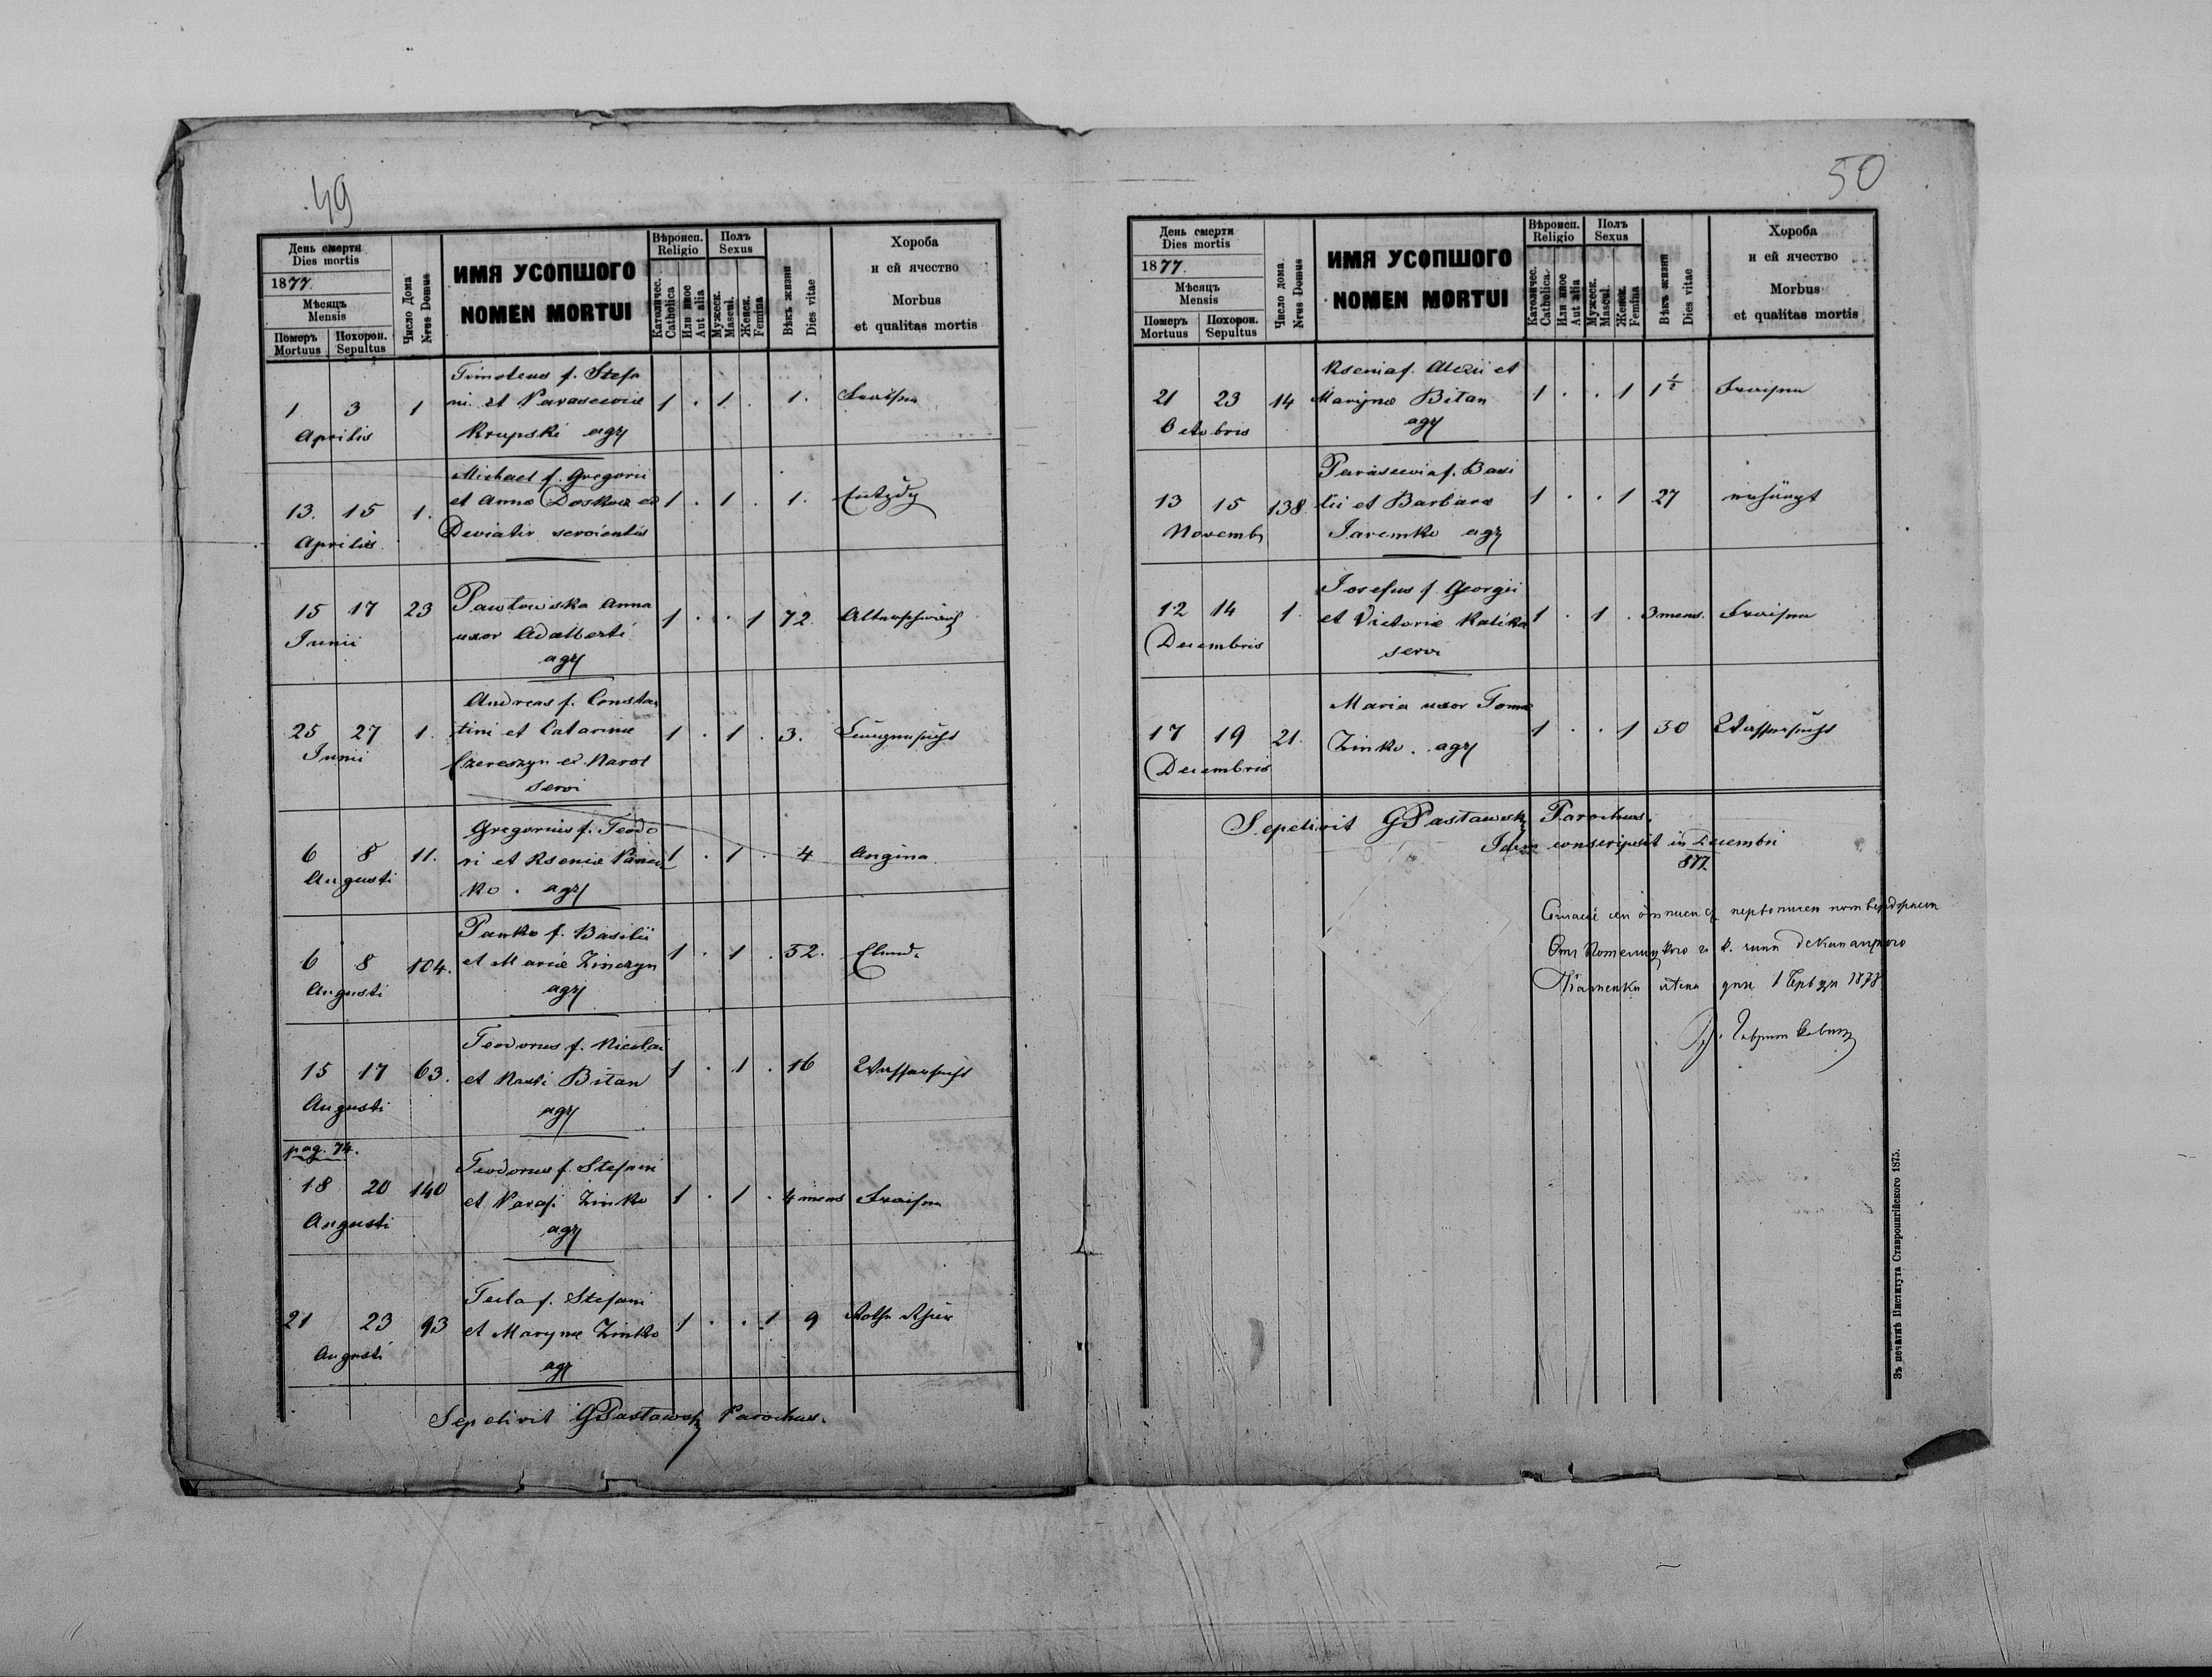 49
День смерти
Dies mortis
1877.
Мѣсяцъ
Mensis
Померъ
Mortuus
Похорон.
Sepultus
Число Дома
Nrus Domus
ИМЯ УСОПШОГО
NOMEN MORTUI
Вѣроисп.
Religio
Католичес.
Catholica
Или иное
Aut alia
Полъ
Sexus
Мужеск.
Mascul.
Женск.
Femina
Вѣкъ жизни
Dies vitae
Хороба
и ей ячество
Morbus
et qualitas mortis
Timoteus f. Stefa
1 3 1 ni et Parasceviae 1 . 1 . 1. Fraisen
Aprilis Krupski agr
Michael f. Gregorii
13. 15 1. et Annae Doskocz et 1 . 1 . 1.
Aprilis Deviatir servientis
15 17 23 Pawłowska Anna 1 . . 1 72. Altersschwäche
Junii uxor Adalberti
agr
Andreas f. Constan
25 27 1. tini et Catarinae 1 . 1 . 3. Lungensucht
Junii Czereszyn et Karol
servi
Gregorius f. Teodo
6 8 11. ri et Kseniae 1 . 1 . 4 Angina
Augusti ko . agr
Panko f. Basilii
6 8 104. et Mariae Zinczyn 1 . 1 . 52.
Augusti agr
Teodorus f. Nicolai
15 17 63. et Nasti Bitan 1 . 1 . 16 Wassersucht
Augusti agr
pag. 74.
Teodorus f. Stefani
18 20 140 et Parasi Zinko 1 . 1 . 4 mens Fraisen
Augusti agr
Tecla f. Stefani
21 23 93 et Marynae Zinko 1 . . 1 9 Rothe Ruhr
Augusti agr
Sepelivit GPastawsky Parochus.
50
День смерти
Dies mortis
1877.
Мѣсяцъ
Mensis
Померъ
Mortuus
Похорон.
Sepultus
Число дома
Nrus Domus
ИМЯ УСОПШОГО
NOMEN MORTUI
Вѣроисп.
Religio
Католичес.
Catholica
Или иное
Aut alia
Полъ
Sexus
Мужеск.
Mascul.
Женск.
Femina
Вѣкъ жизни
Dies vitae
Хороба
и ей ячество
Morbus
et qualitas mortis
Ksenia f. Alexii et
21 23 14 Marynae Bitan 1 . . 1 1½ Fraisen
Octobris agr
Parascevia f. Basi
13 15 138. lii et Barbarae 1 . . 1 27
Novemb Jaremko agr
Josefus f. Georgii
12 14 1. et Victoriae Kalika 1 . 1 . 3 mens. Fraisen
Decembris servi
Maria uxor Tomae
17 19 21. Zinko . agr 1 . . 1 30 Wassersucht
Decembris
Sepelivit GPastawsky Parochus.
Idem conscripsit in Decembri
877.
1878
Зъ печатнѣ Института Ставропигійского 1875.